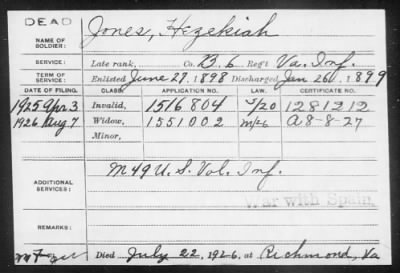 DEAD
NAME OF SOLDIER: Jones, Hezekiah
SERVICE: Late rank, Co. B. 6 Reg't Va. Inf.
TERM OF SERVICE: Enlisted June 27, 1898 Discharged Jan 26, 1899
DATE OF FILING. CLASS. APPLICATION NO. LAW. CERTIFICATE NO.
1925 Apr 3 Invalid, 1516804 J/20 1281212
1926 Aug 7 Widow, 1551002 M/26 A 8-8-27
Minor,
ADDITIONAL SERVICES: M 49 U.S. Vol. Inf.
War with Spain.
REMARKS:
Died July 22, 1926, at Richmond, Va